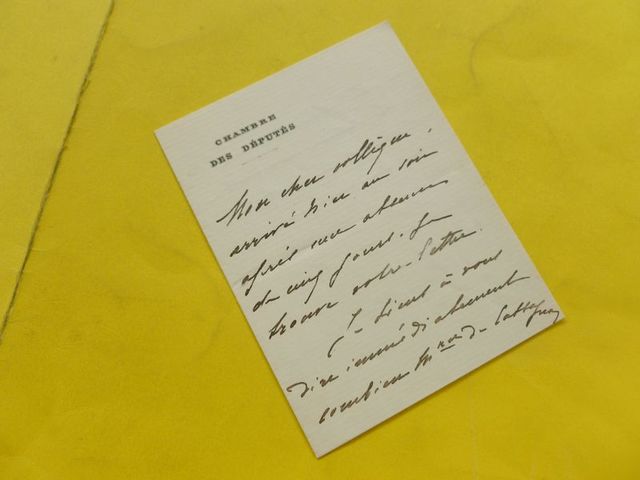 CHAMBRE
DES DÉPUTÉS
Mon cher collègue,
arrivé hier au soir
après une absence
de cinq jours, je
trouve votre lettre.
Je tiens à vous
dire immédiatement
combien Mme de